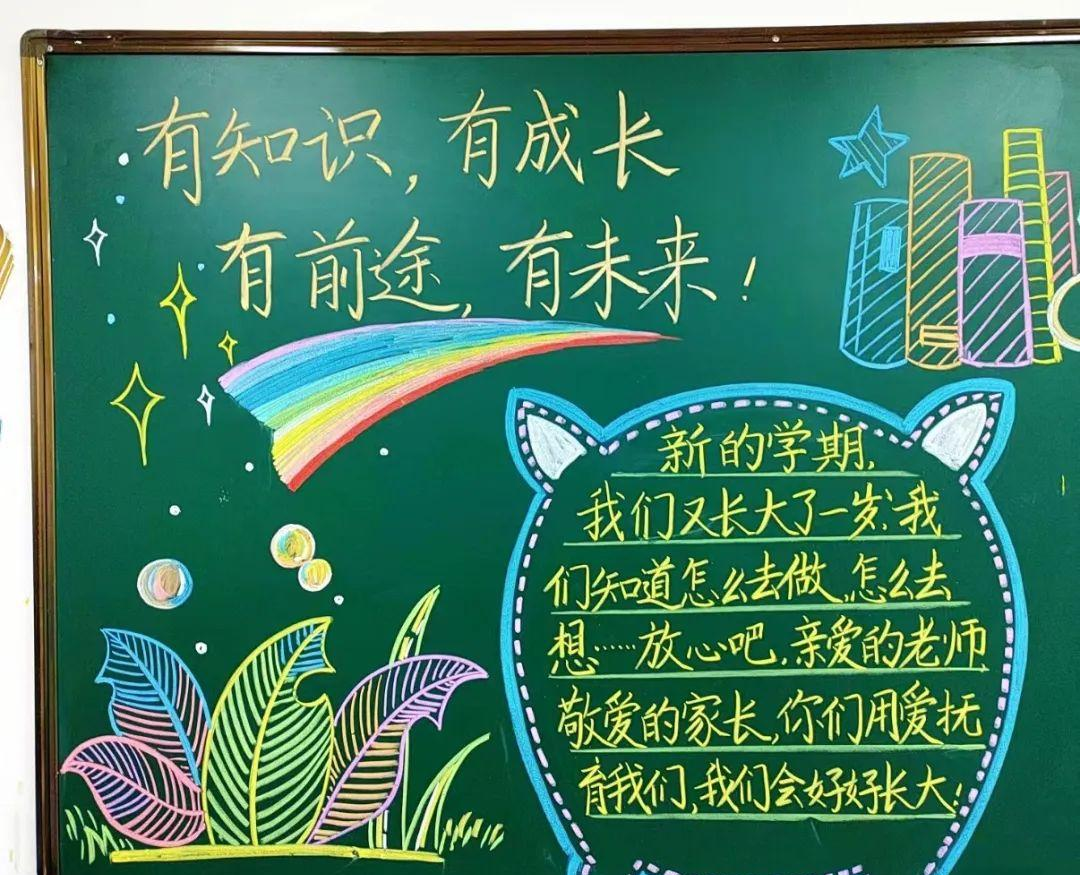 有知识，有成长
有前途，有未来！
新的学期，
我们又长大了一岁：我
们知道怎么去做，怎么去
想……放心吧，亲爱的老师，
敬爱的家长，你们用爱抚
育我们，我们会好好长大！